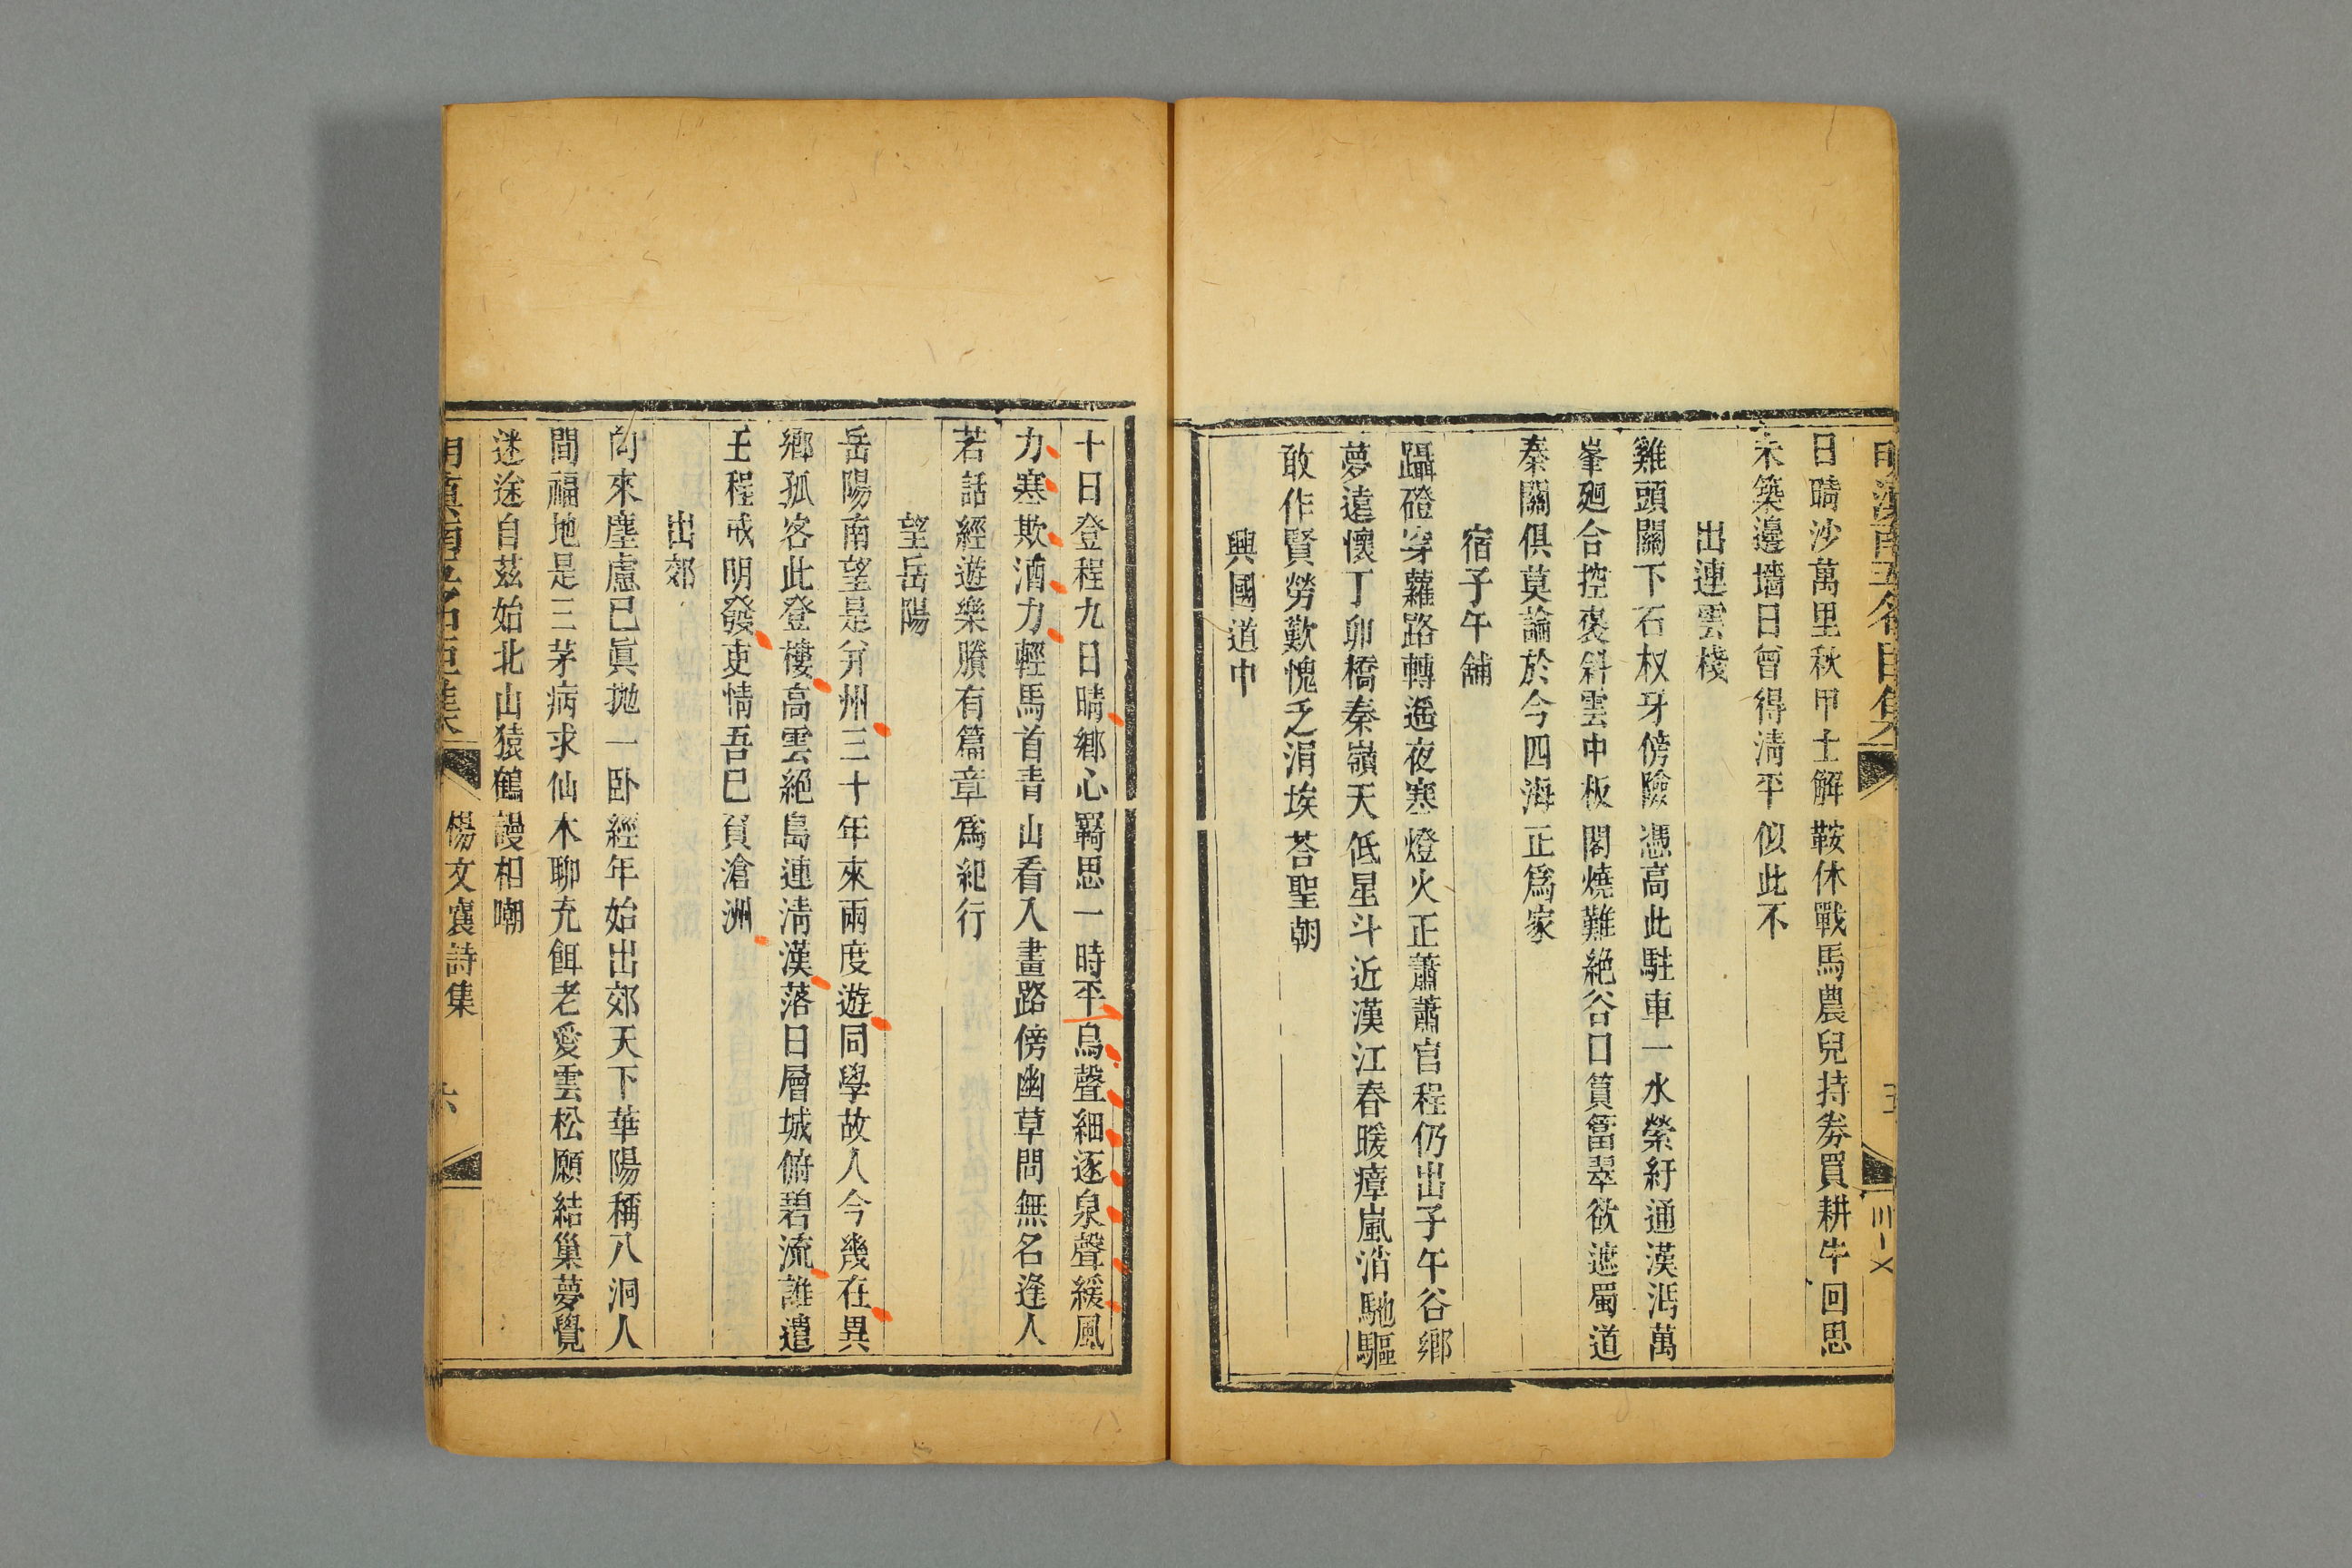 日晴沙萬里秋甲士解鞍休戰馬農兒持劵買耕牛回思
未築邊墻日曾得淸平似此不
出連雲棧
雞頭關下石杈牙傍險憑高此駐車一水縈紆通漢沔萬
峯廻合控褒斜雲中板閣燒難絶谷口篔簹翠欲遮蜀道
秦關俱莫論於今四海正爲家
宿子午舖
躡磴穿蘿路轉遙夜寒燈火正蕭蕭官程仍出子午谷鄉
夢遠懷丁卯橋秦嶺天低星斗近漢江春暖瘴嵐消馳驅
敢作賢勞歎愧乏涓埃荅聖朝
興國道中
十日登程九日晴鄉心羇思一時平烏聲細逐泉聲緩風
力寒欺酒力輕馬首青山看入畫路傍幽草問無名逢人
若話經遊樂賸有篇章爲紀行
望岳陽
岳陽南望是幷州三十年來兩度遊同學故人今幾在異
鄉孤客此登樓高雲絕島連淸漢落日層城俯碧流誰遣
王程戒明發吏情吾已負滄洲
出郊
向來塵慮已眞拋一卧經年始出郊天下華陽稱八洞人
間福地是三茅病求仙朮聊充餌老愛雲松願結巢夢覺
迷途自茲始北山猿鶴謾相嘲
楊文襄詩集
六